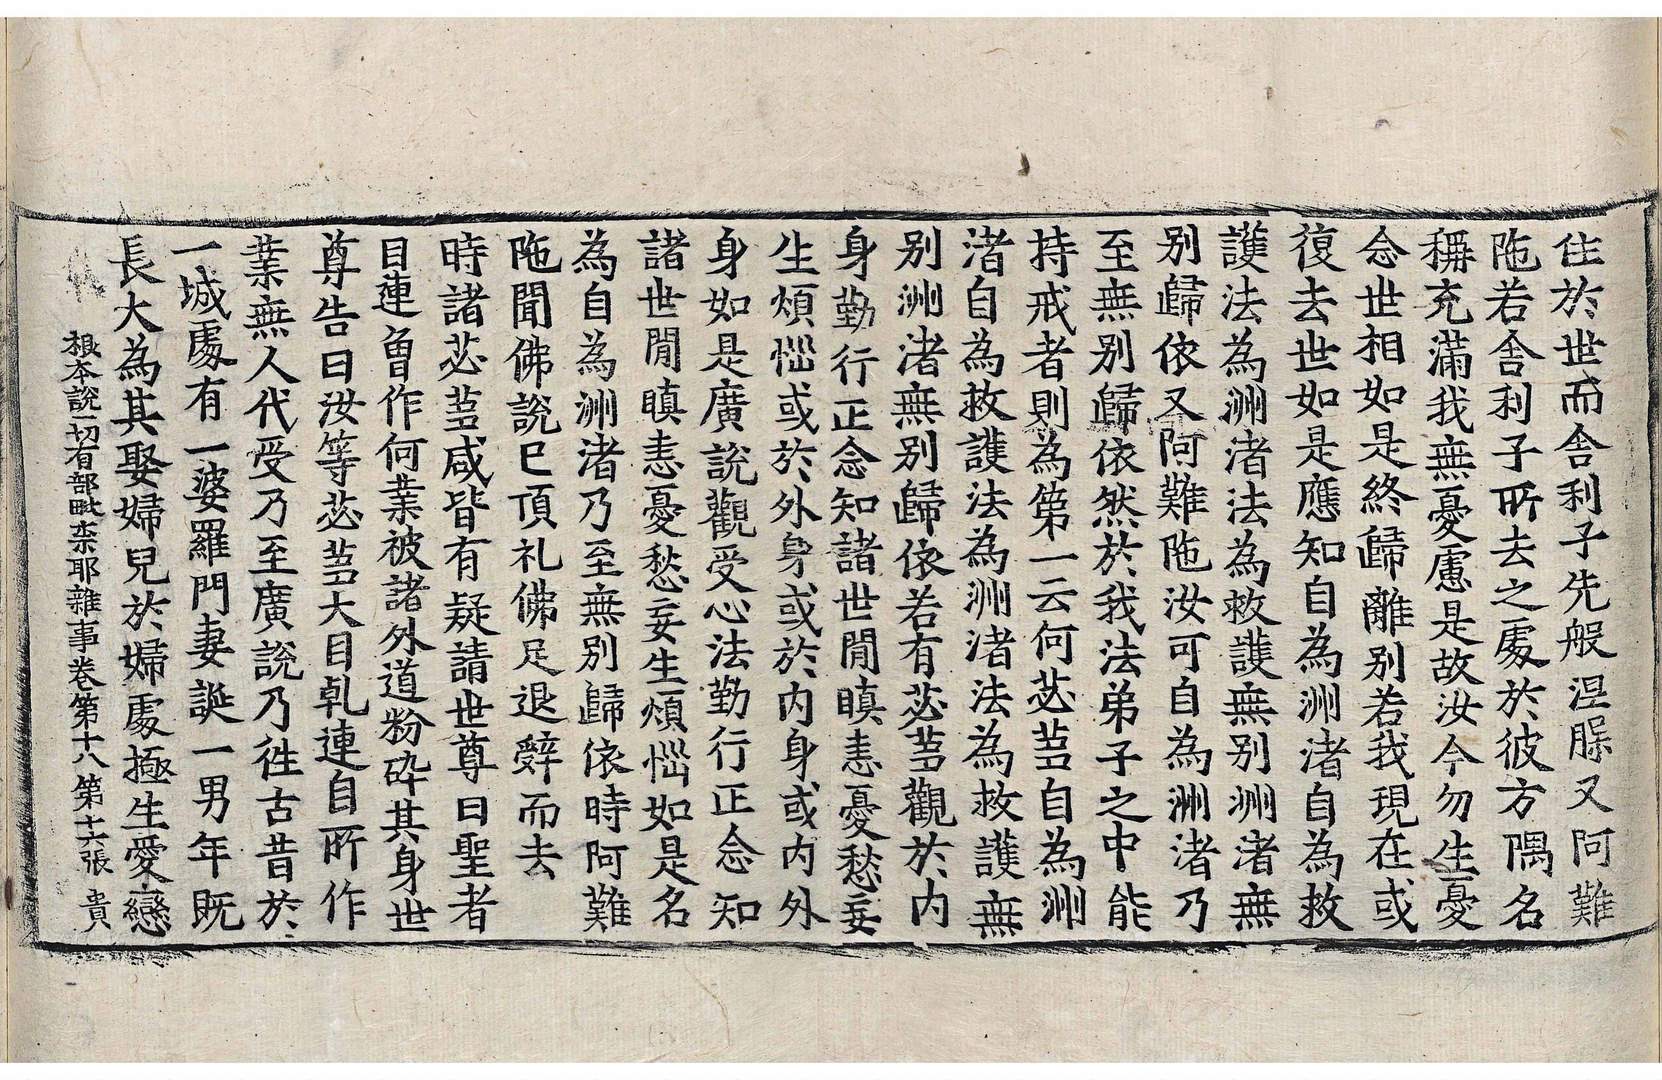 住於世而舍利子先般涅槃又阿難
陁若舍利子所去之處於彼方隅名
稱充滿我無憂慮是故汝今勿生憂
念世相如是終歸離別若我現在或
復去世如是應知自為洲渚自為救
護法為洲渚法為救護無別洲渚無
別歸依又阿難陁汝可自為洲渚乃
至無別歸依然於我法弟子之中能
持戒者則為第一云何苾芻自為洲
渚自為救護法為洲渚法為救護無
別洲渚無別歸依若有苾芻觀於內
身勤行正念知諸世間瞋恚憂愁妄
生煩惱或於外身或於內身或內外
身如是廣說觀受心法勤行正念知
諸世間瞋恚憂愁妄生煩惱如是名
為自為洲渚乃至無別歸依時阿難
陁聞佛說已頂礼佛足退辭而去
時諸苾芻咸皆有疑請世尊曰聖者
目連曾作何業被諸外道粉碎其身世
尊告曰汝等苾芻大目乹連自所作
業無人代受乃至廣說乃徃古昔於
一城處有一婆羅門妻誕一男年既
長大為其娶婦兒於婦處極生愛戀
根本說一切有部毗柰耶雜事卷第十八 第十六張 貴